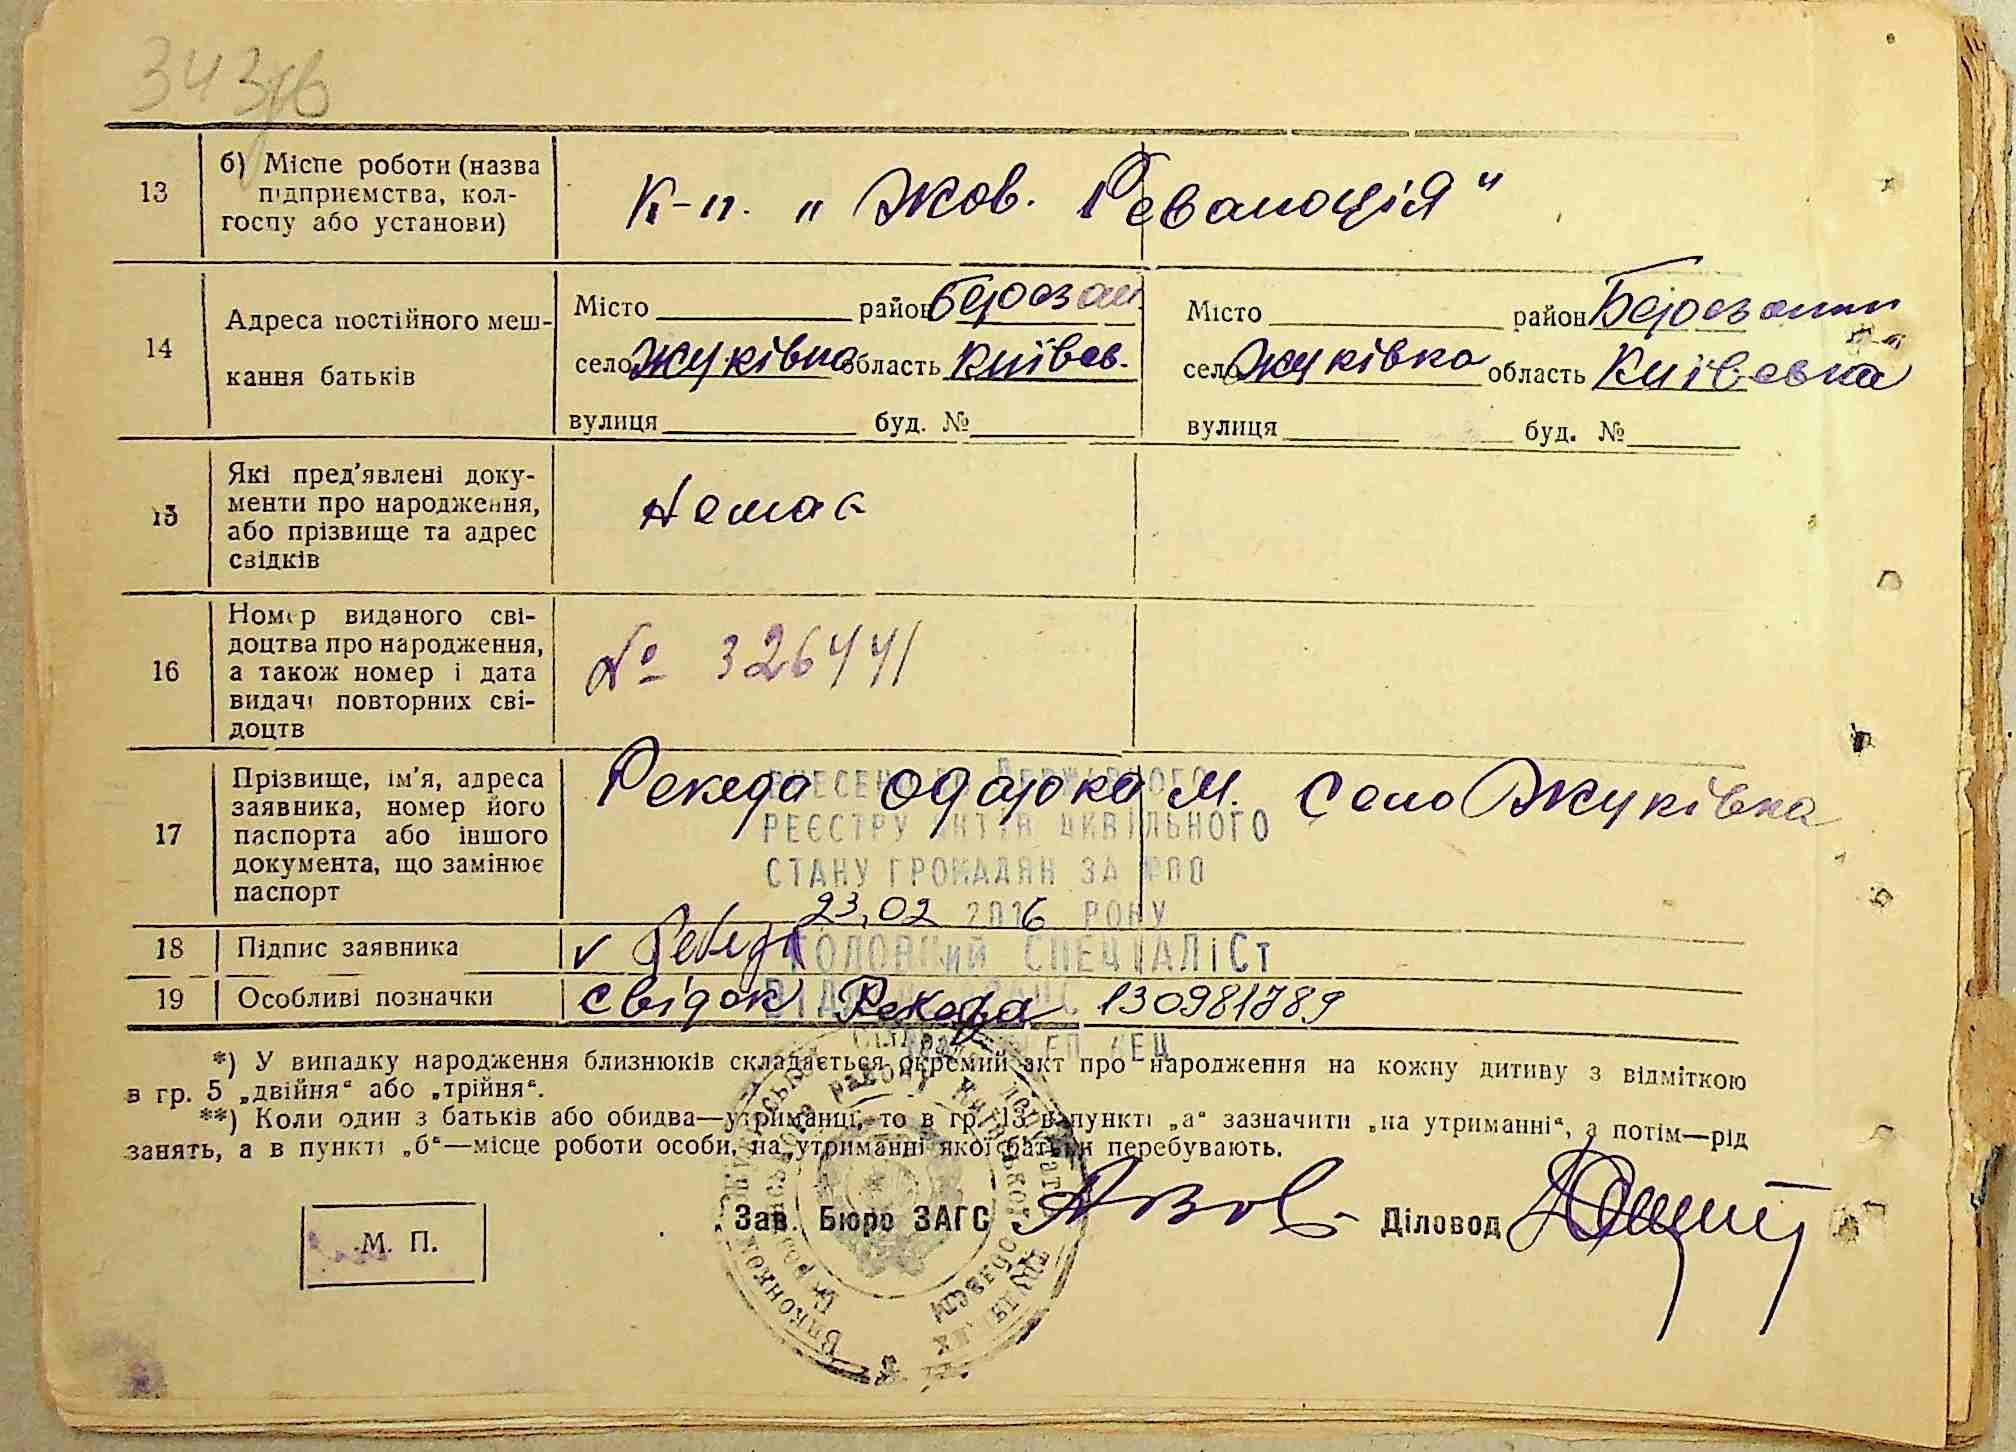 343зв
13 б) Місце роботи (назва
підприємства, кол-
госпу або установи)
К-п. „Жов. Революція"
14 Адреса постійного меш-
кання батьків
Місто район Березан
село Жуківка область Київсв.
вулиця буд. №
Місто район Березанки
село Жуківка область Київська
вулиця буд. №
15 Які пред'явлені доку-
менти про народження,
або прізвище та адрес
свідків
Немає
16 Номер виданого сві-
доцтва про народження,
а також номер і дата
видачі повторних сві-
доцтв
№ 326441
17 Прізвище, ім'я, адреса
заявника, номер його
паспорта або іншого
документа, що замінює
паспорт
Рекеда Одарка М. Село Жуківка
ВНЕСЕНО ДО ДЕРЖАВНОГО
РЕЄСТРУ АКТІВ ЦИВІЛЬНОГО
СТАНУ ГРОМАДЯН ЗА №00
23,02 2016 РОКУ
18 Підпис заявника v Рекеда
ГОЛОВНИЙ СПЕЦІАЛІСТ
19 Особливі позначки свідок Рекеда 130981789
*) У випадку народження близнюків складається окремий акт про народження на кожну дитину з відміткою
в гр. 5 „двійня“ або „трійня“.
**) Коли один з батьків або обидва—утриманці, то в гр. 13 в пункті „а“ зазначити „на утриманні“, а потім—рід
занять, а в пункті „б“—місце роботи особи, на утриманні якої батьки перебувають.
М. П.
Зав. Бюро ЗАГС
Діловод